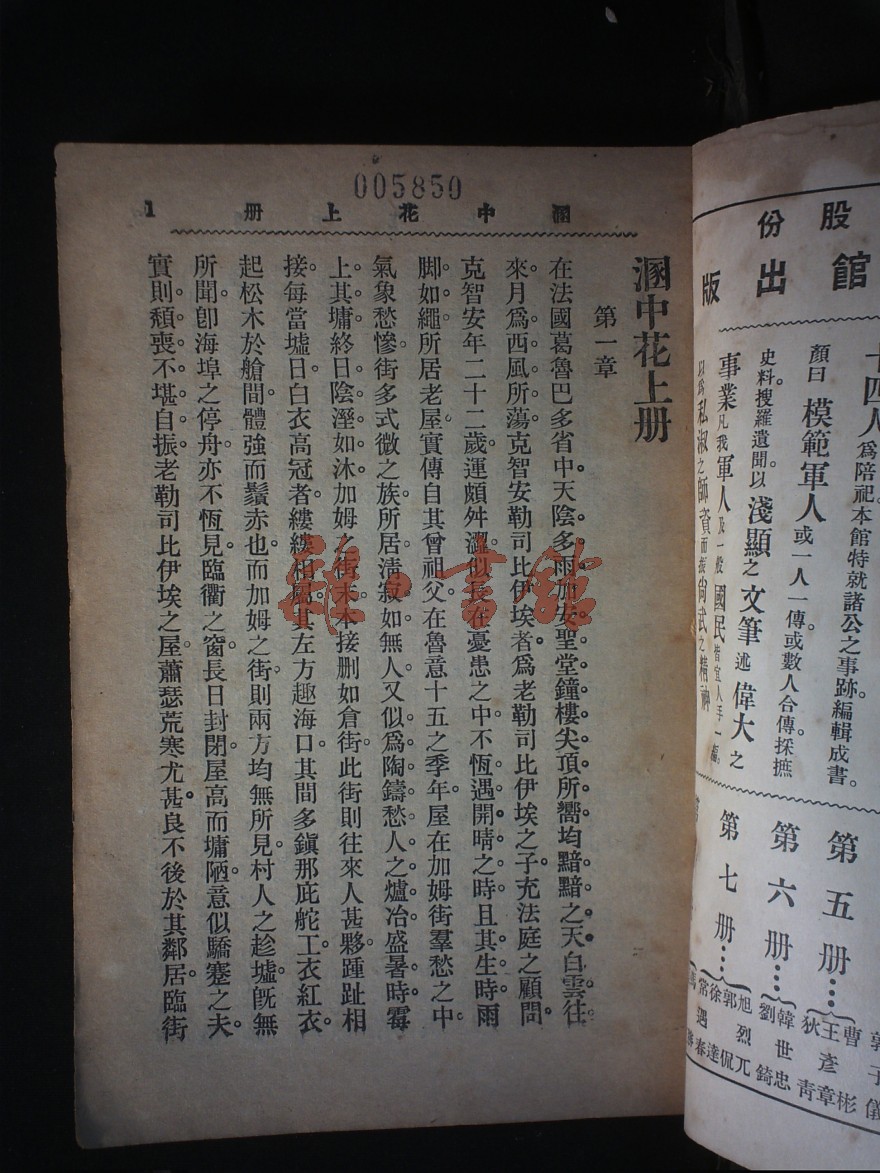 005850
溷中花上册 1
溷中花上册
第一章
在法國葛魯巴多省中。天陰多雨。加安聖堂鐘樓尖頂所嚮。均黯黯之天。白雲往
來。月爲西風所蕩。克智安勒司比伊埃者。爲老勒司比伊埃之子。充法庭之顧問。
克智安年二十二歲。運頗舛澀。似長在憂患之中。不恆遇開晴之時。且其生時雨
脚如繩。所居老屋。實傳自其曾祖父。在魯意十五之季年。屋在加姆街羣愁之中。
氣象愁慘。街多式微之族。所居淸寂如無人。又似爲陶鑄愁人之爐冶。盛暑時霉
上其墉。終日陰溼如沐。加姆之街末。本接刪如倉街。此街則往來人甚夥。踵趾相
接。每當墟日。白衣高冠者。縷縷相屬。其左方趣海口。其間多鎭那庇舵工。衣紅衣。
起松木於艙間。體強而鬚赤也。而加姆之街。則兩方均無所見。村人之趁墟。旣無
所聞。卽海埠之停舟。亦不恆見。臨衢之窗。長日封閉。屋高而墉陋。意似驕蹇之夫。
實則頹喪。不堪自振。老勒司比伊埃之屋。蕭瑟荒寒尤甚。良不後於其鄰居。臨街
股份
館出版
十四人爲陪祀。本館特就諸公之事跡。編輯成書。
顏曰模範軍人或一人一傳。或數人合傳。採摭
史料。搜羅遺聞。以淺顯之文筆述偉大之
事業凡我軍人及一般國民皆宜人手一編。
以爲私淑之師資而振尚武之精神
郭子儀
第五册…曹彬 王彥章 狄青
第六册…韓世忠 劉錡
第七册…旭烈兀 郭侃 徐達 常遇春